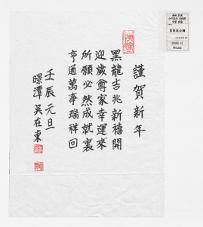 謹賀新年
黑龍吉兆新禧開
迎歲尊家幸運來
所願必然成就裏
亨通萬事瑞祥回
壬辰元旦
暻潭 吳在東